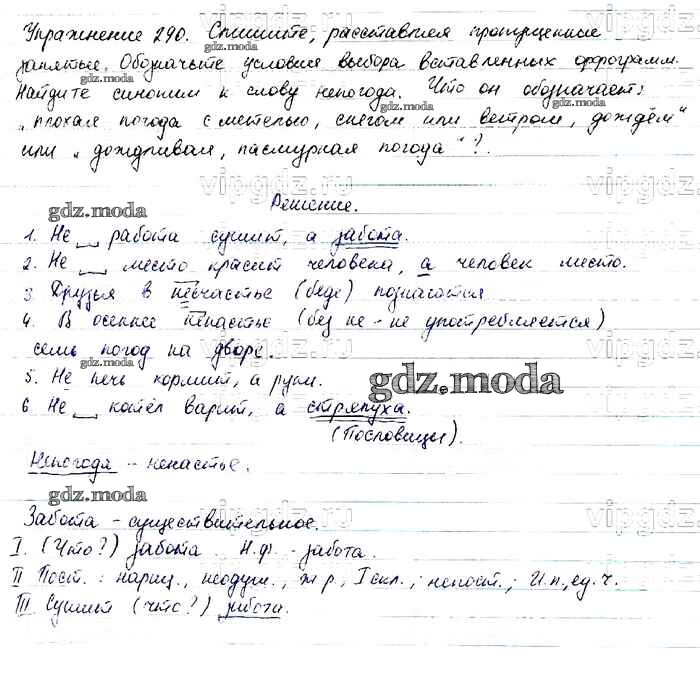 Упражнение 290. Спишите, расставляя пропущенные
запятые. Обозначьте условия выбора вставленных орфограмм.
Найдите синоним к слову непогода. Что он обозначает:
„плохая погода с метелью, снегом или ветром, дождём“
или „дождливая, пасмурная погода“?
Решение.
1. Не работа сушит, а забота.
2. Не место красит человека, а человек место.
3. Друзья в несчастье (беде) познаются
4. В осеннее ненастье (без не - не употребляется)
семь погод на дворе.
5. Не печь кормит, а руки.
6. Не котёл варит, а стряпуха.
(Пословицы).
Непогода - ненастье.
Забота - существительное.
I. (Что?) забота. Н.ф. - забота.
II Пост.: нариц., неодуш., ж.р., I скл.; непост.; И.п., ед.ч.
III. Сушит (что?) забота.
gdz.moda
gdz.moda
gdz.moda
gdz.moda
gdz.moda
gdz.moda
gdz.moda
gdz.moda
gdz.moda
vipgdz.ru
vipgdz.ru
vipgdz.ru
vipgdz.ru
vipgdz.ru